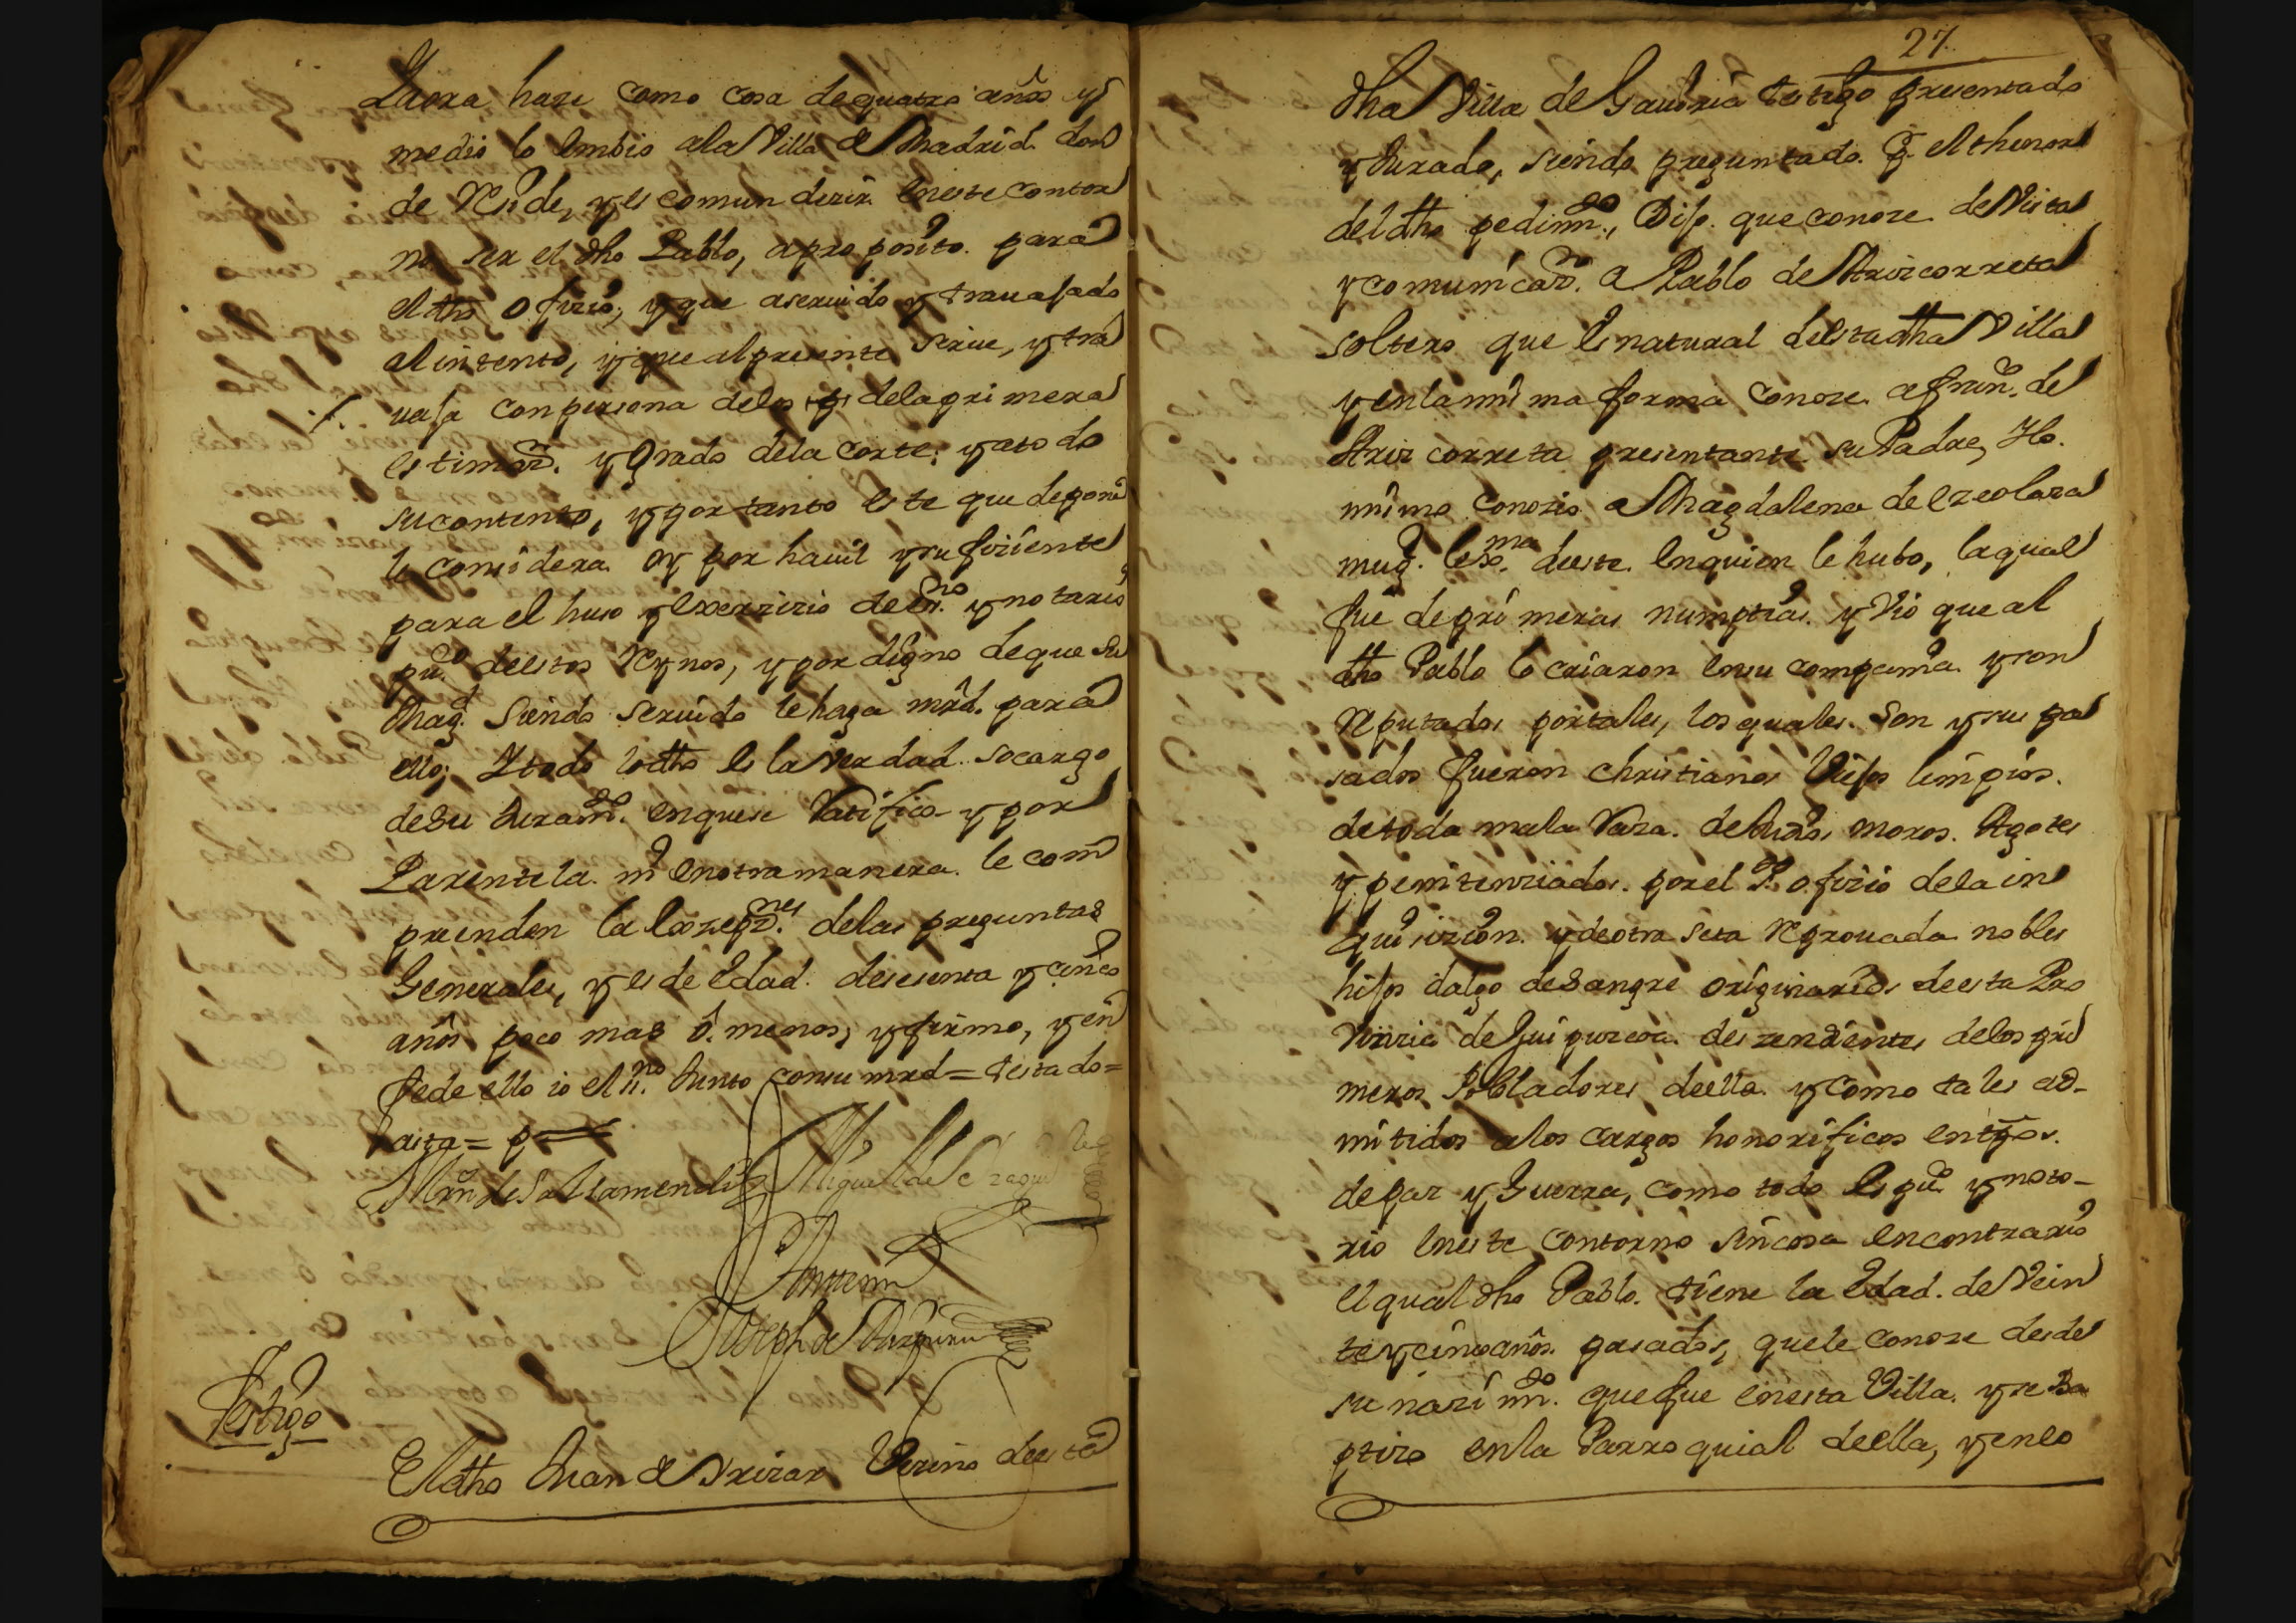 Yaora haze como cosa de quatro años y
medio lo embio ala Villa de Madrid. don
de Reside, y es comun dezir en este contor
no ser el dho Pablo, aproposito. para
el dho ofizio, y que aseruido y trauajado
al intento, y que al presente sirue, y tra
uaja con persona delos dela primera
estimazn. y Grado dela Corte. y a todo
su contento, y por tanto este que depone
le considera oy por hauil y sufiziente
para el huso y exerzizio de essno. y notario
puco. de estos Reynos, y por digno de que Su
Magd. Siendo seruido le haga mrd. para
ello; Y todo lo dho es la verdad. so cargo
de su Juramto. en que se Ratifico y por
Parentela ni en otra manera. le com
prenden las exzepznes. delas preguntas
Generales, y es de Edad. de sesenta y cinco
años poco mas ô. menos, y firmo, y en
fe de ello io el essno. Junto con su mrd = testado =
hasta = p
Mrn de Sallamendi Miguel de
Antemi
Joseph de
Testigo
El dho Juan de Yrizar Vezino de esta
27.
dha Villa de Gauiria testigo presentado
y Jurado, siendo preguntado. Pr. el thenor
del dho pedimto., Dijo. que conoze de Vista
y comunicazn. a Pablo de Arizcorreta
soltero que es natural desta dha Villa
y en la misma forma conoze a Franco. de
Arizcorreta presentante su Padre, Yo.
mismo conozio a Magdalena de ezeolaza
mugr. lexma. de este. en quien le hubo, la qual
fue de primeras numptias. y Vio que al
dho Pablo lo criaron en su compania y son
Reputados por tales, los quales. Son y sus pa
sados fueron christianos Viejos limpios.
de toda mala Raza. de Judios moros. Agotes
y penitenziados. por el Sto. ofizio dela in
quisizion. y de otra seta Reprouada nobles
hijos dalgo de Sangre originarios de esta Pro
Vinzia de Guipuzcoa. deszendientes delos pri
meros Pobladores de ella. y como tales ad-
mitidos alos cargos honorificos en tpos.
de paz y Guerra, como todo es puco. y noto-
rio en este contorno sin cosa en contrario
el qual dho Pablo. tiene la Edad. de Vein
te y cinco años. pasados, que le conoze desde
su nazimto. que fue en esta Villa. y se Ba
ptizo en la Parroquial de ella, y en lo